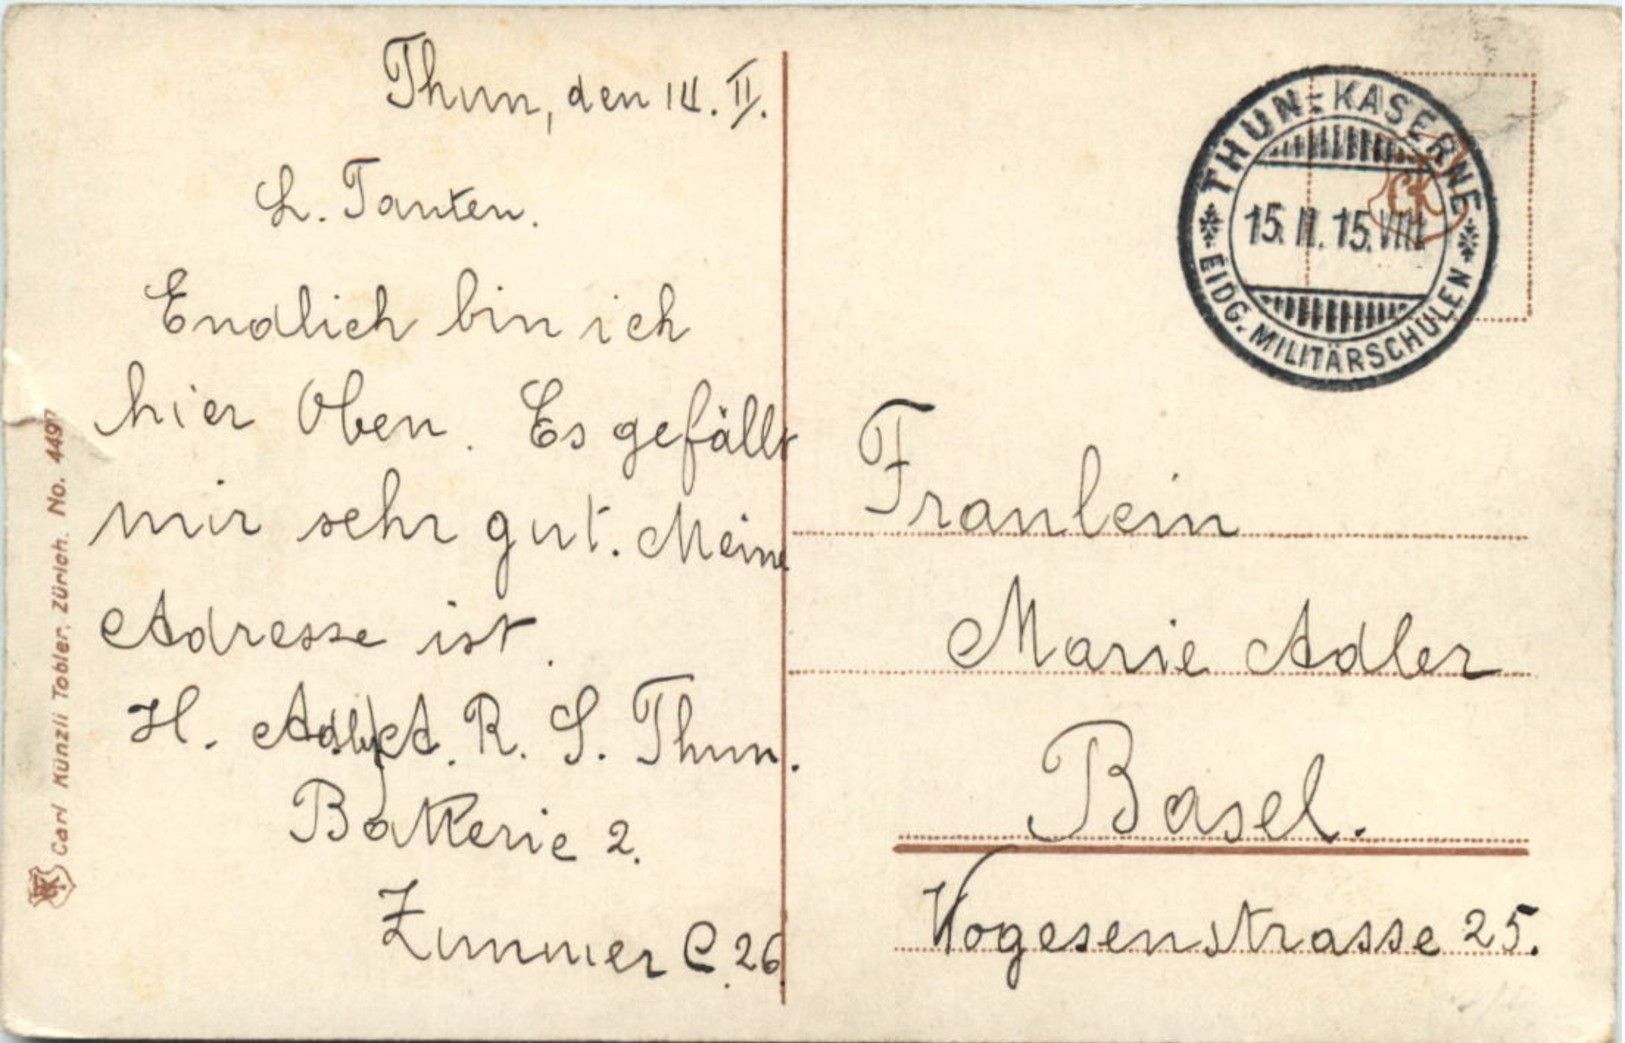 Thun, den 14. II.
L. Tanten.
Endlich bin ich
hier Oben. Es gefällt
mir sehr gut. Meine
Adresse ist.
H. Adler A. R. S. Thun.
Batterie 2.
Zimmer C. 26
THUN-KASERNE
15. II. 15. VIII
EIDG. MILITÄRSCHULEN
CK
Fraulein
Marie Adler
Basel.
Vogesenstrasse 25.
Carl Künzli Tobler, Zürich. No. 4497